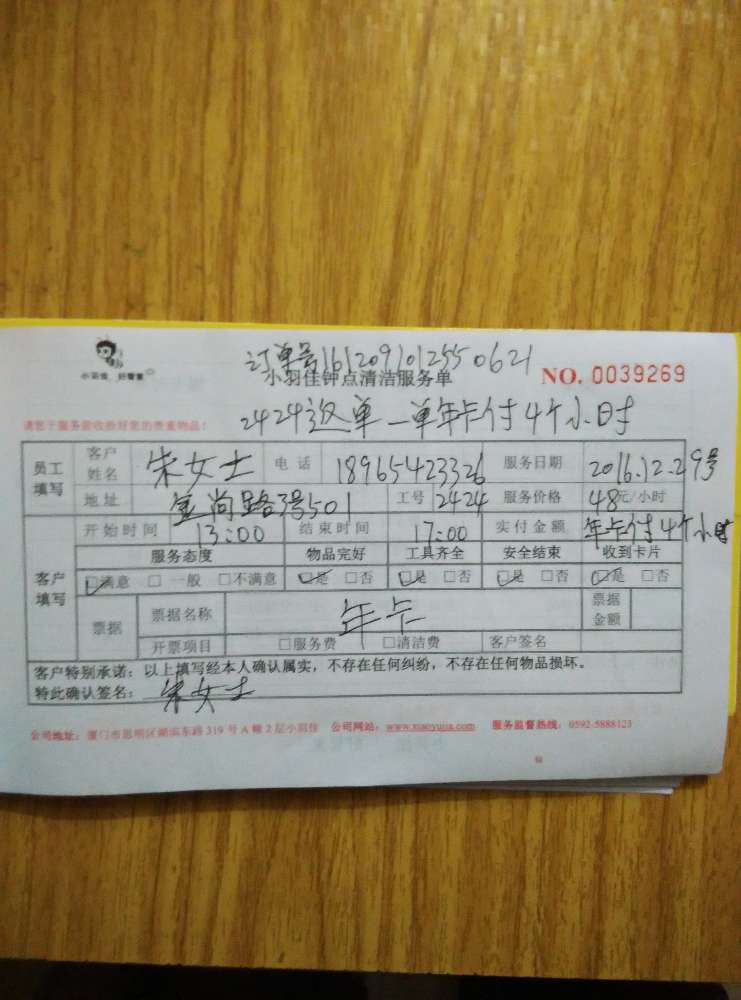 订单号16120910125506​21
小羽佳 好管家
小羽佳钟点清洁服务单
NO. 0039269
请您于服务前收拾好您的贵重物品！
2424这单一单年卡付4个小时
员工填写 客户姓名 朱女士 电话 18965423326 服务日期 2016.12.29号
地址 金尚路3号501 工号 2424 服务价格 48元/小时
客户填写 开始时间 13:00 结束时间 17:00 实付金额 年卡付4个小时
服务态度 物品完好 工具齐全 安全结束 收到卡片
☑满意 □一般 □不满意 ☑是 □否 ☑是 □否 ☑是 □否 ☑是 □否
票据 票据名称 年卡 票据金额
开票项目 □服务费 □清洁费 客户签名
客户特别承诺：以上填写经本人确认属实，不存在任何纠纷，不存在任何物品损坏。
特此确认签名： 朱女士
公司地址：厦门市思明区湖滨东路319号A幢2层小羽佳 公司网站：www.xiaoyujia.com 服务监督热线：0592-5888123